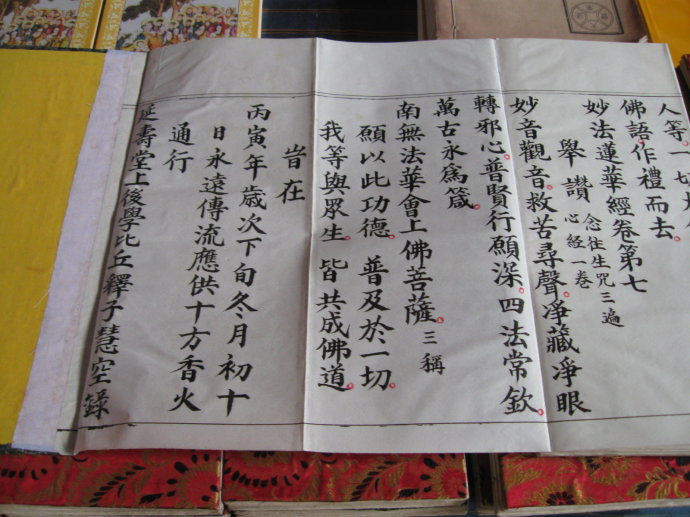 人等。一切大
佛語。作禮而去。
妙法蓮華經卷第七
念往生咒三遍
舉讚 心經一卷
妙音觀音。救苦尋聲。淨藏淨眼
轉邪心。普賢行願深。四法常欽。
萬古永為箴。
南無法華會上佛菩薩。三稱
願以此功德。普及於一切。
我等與眾生。皆共成佛道。
旹在
丙寅年歲次下旬冬月初十
日永遠傳流應供十方香火
通行
延壽堂上後學比丘釋子慧空錄